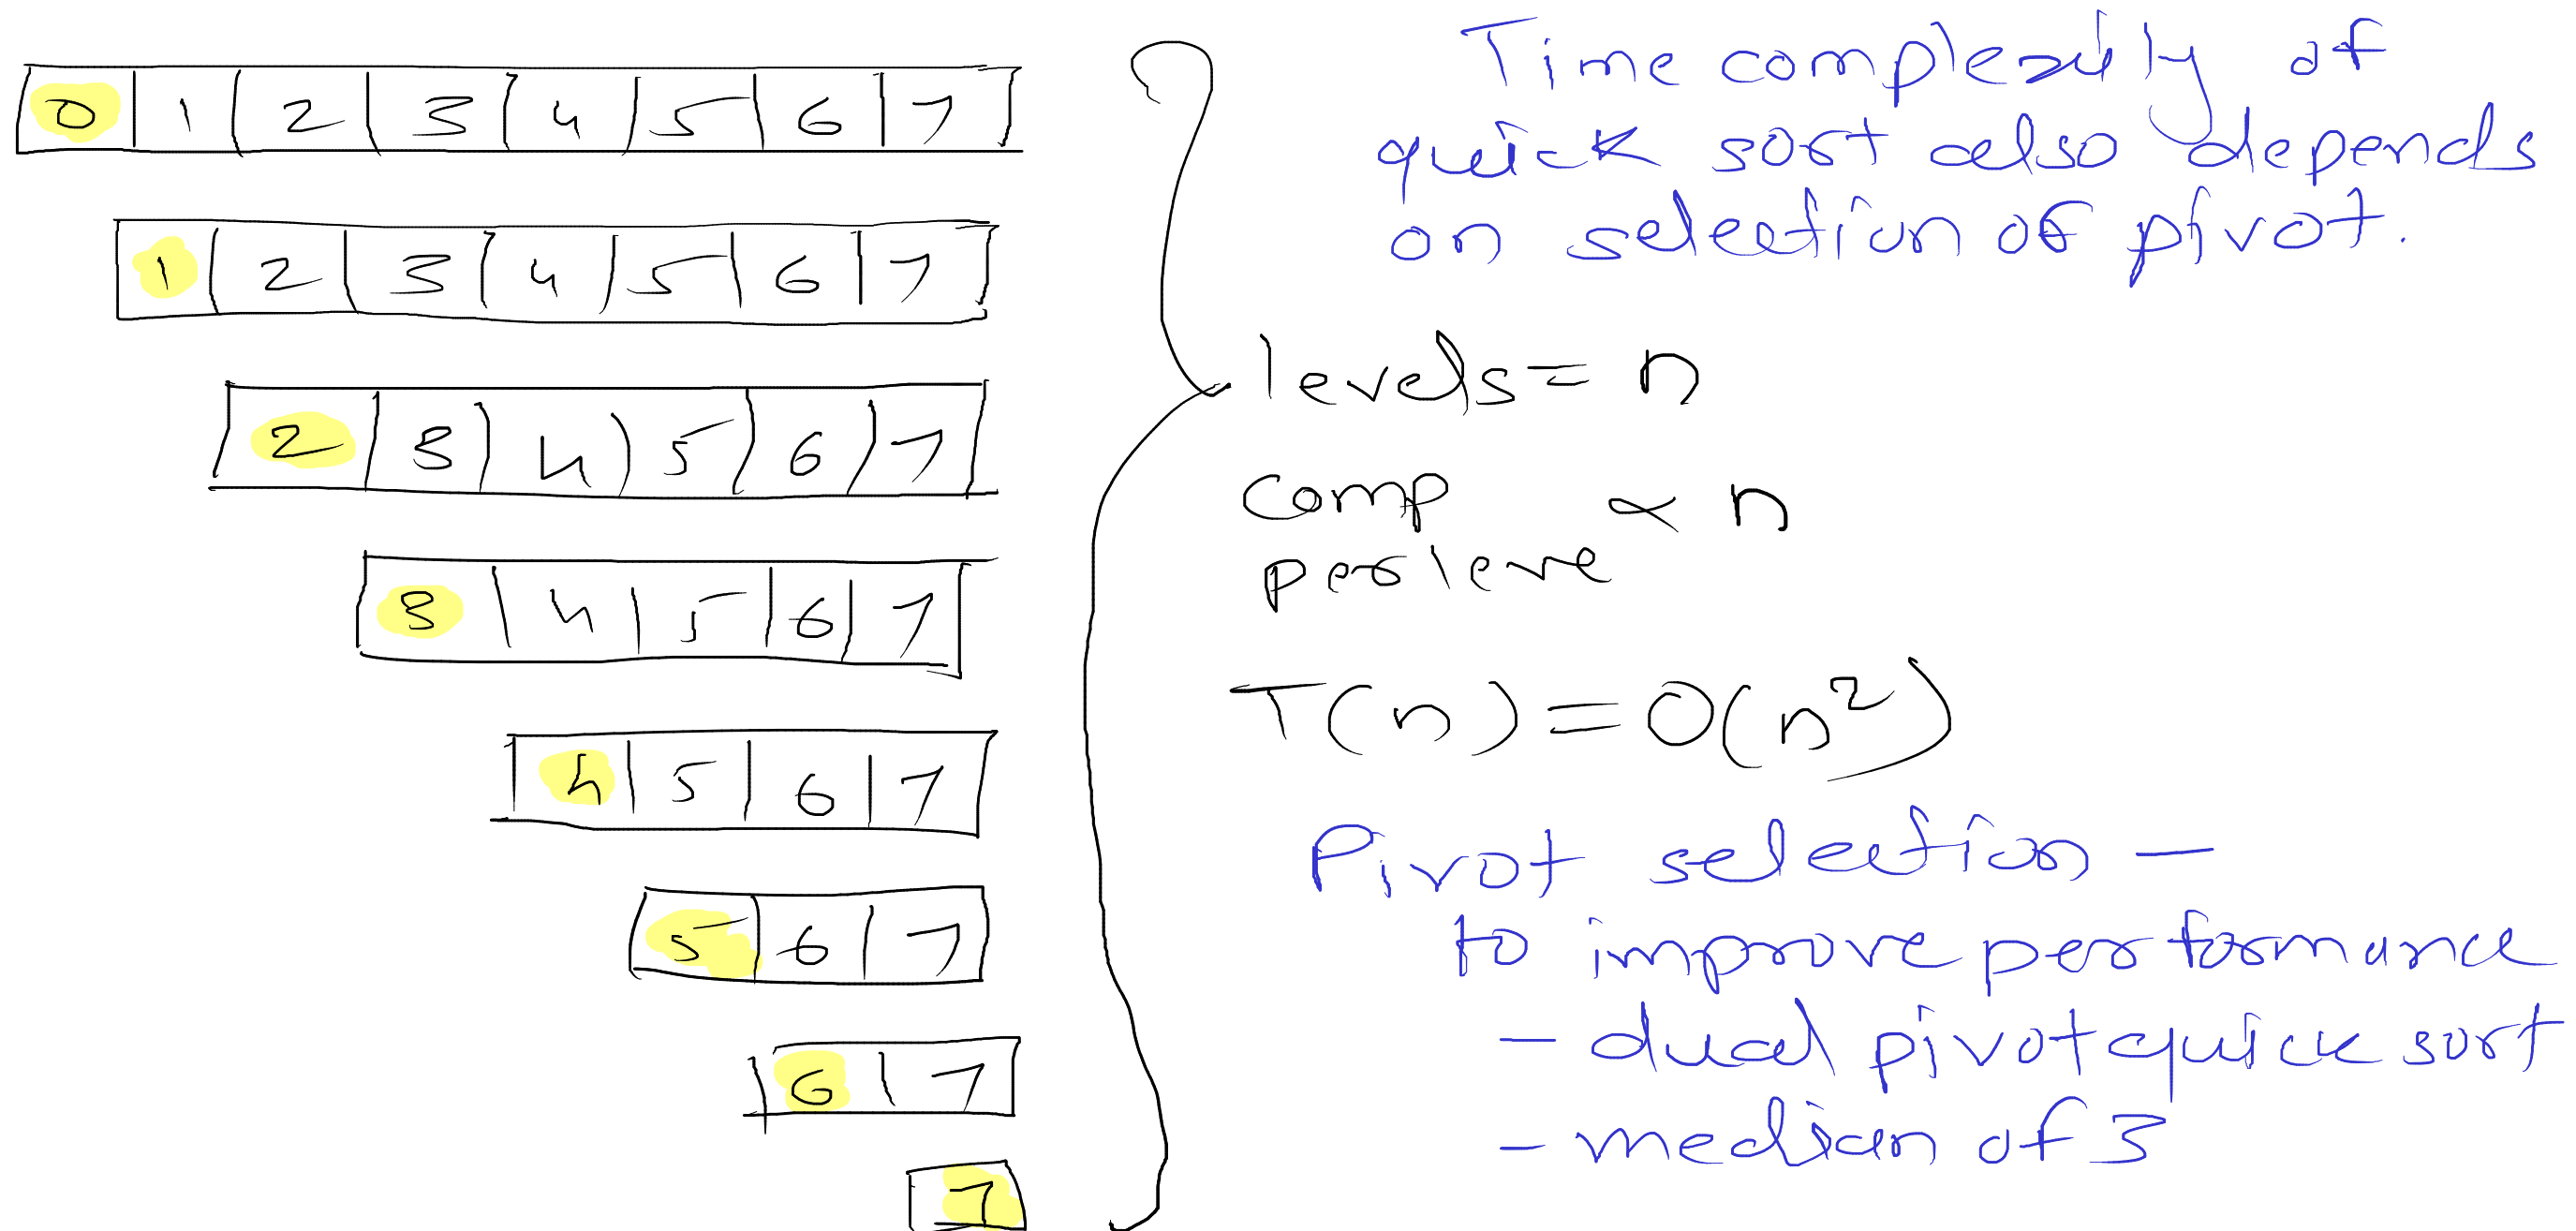 0 1 2 3 4 5 6 7
1 2 3 4 5 6 7
2 3 4 5 6 7
3 4 5 6 7
4 5 6 7
5 6 7
6 7
7
Time complexity of
quick sort also depends
on selection of pivot.
levels = n
comp ∝ n
per leve
T(n) = O(n²)
Pivot selection -
to improve performance
- dual pivot quick sort
- median of 3